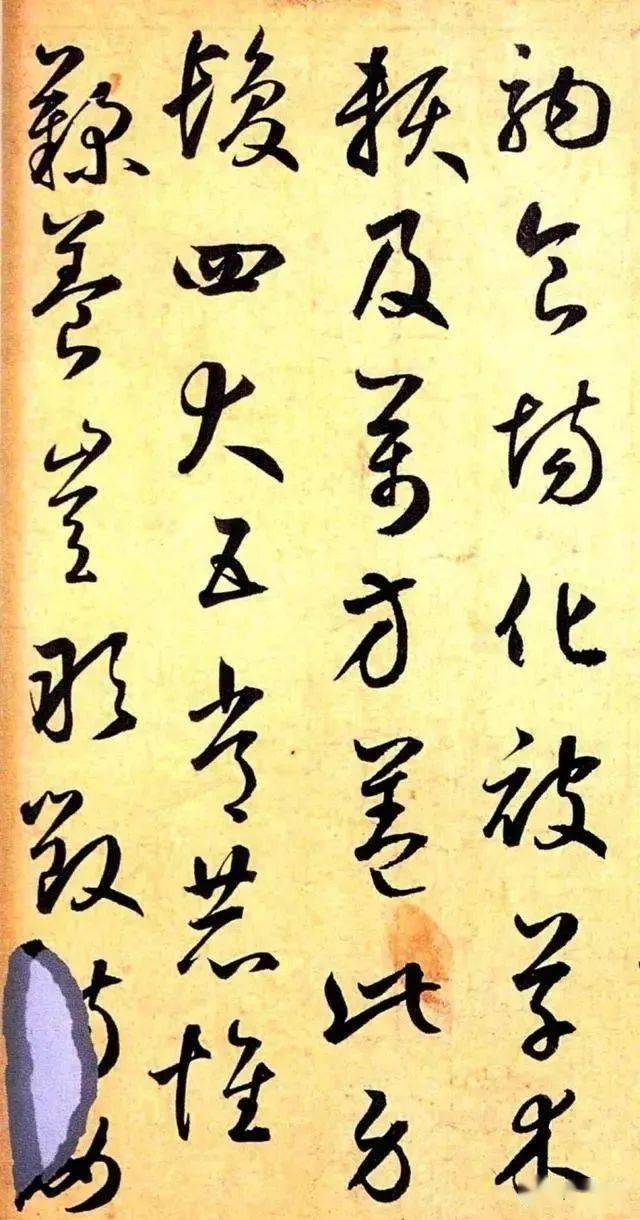 駒食場化被草木
賴及萬方蓋此身
髮四大五常恭惟
鞠養豈敢毀女